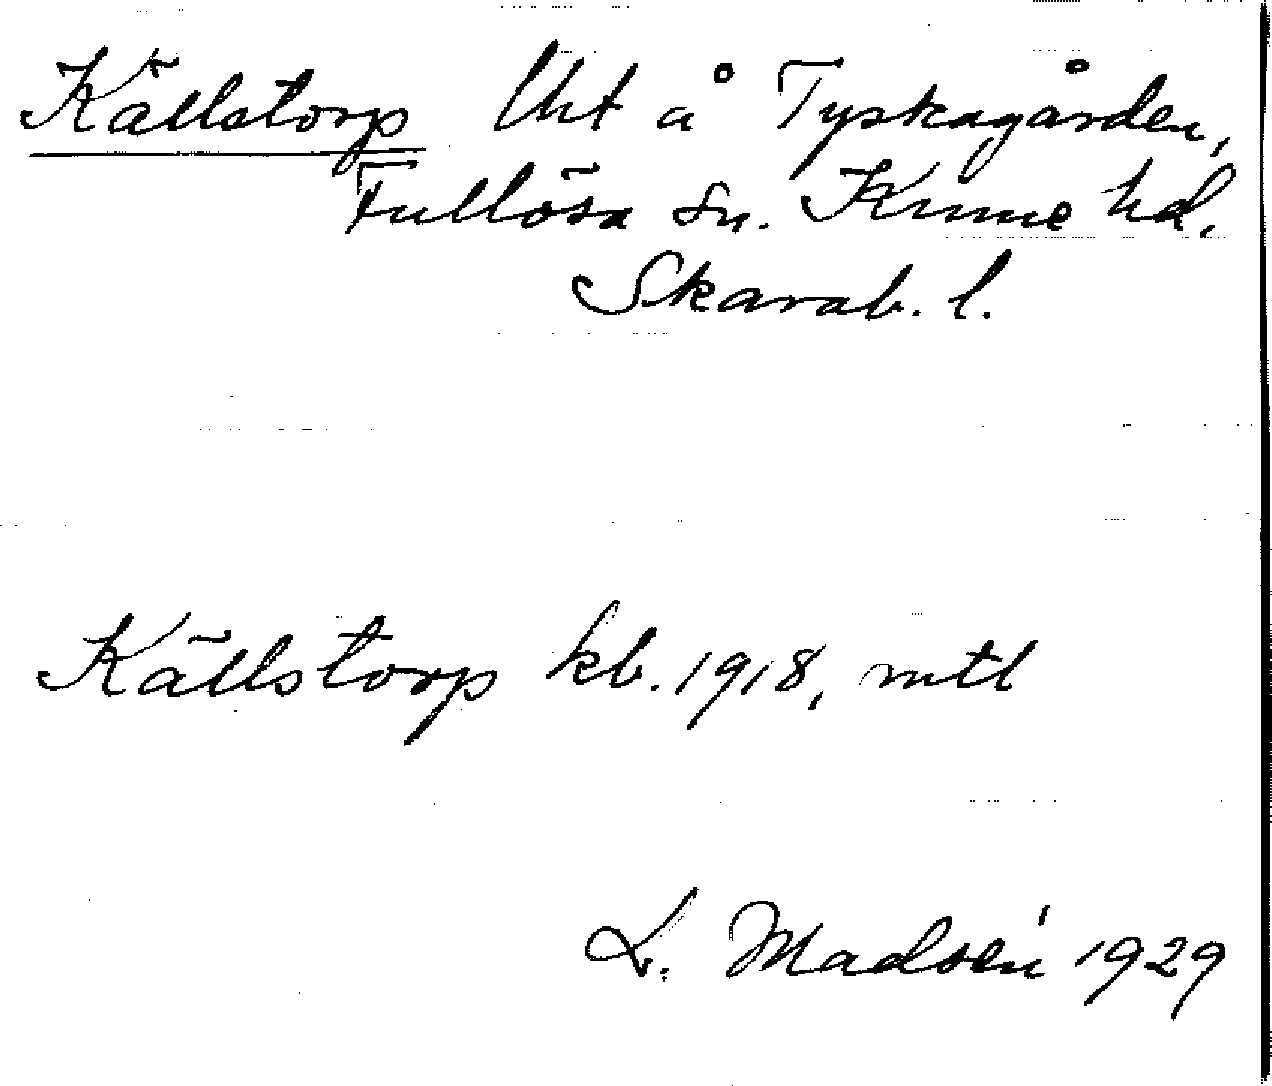 Källstorp lht å Tyskagården,
Fullösa sn. Kinne hd,
Skarab. l.
Källstorp kb. 1918, mtl
L. Madsén 1929